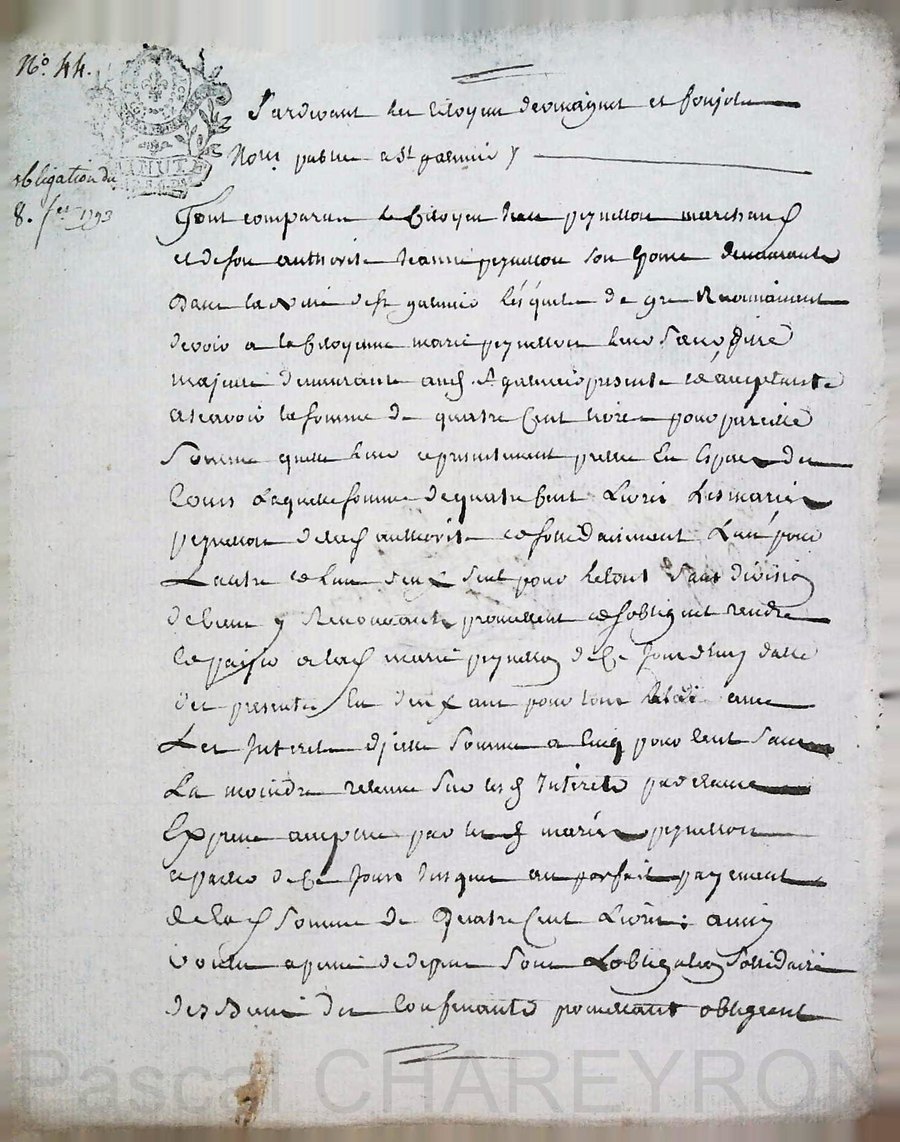 N.° 44.
MINUTE
obligation du
8. fer 1793
Pardevant les Citoyen et
Nores publics a St galmier
Sont comparus le Citoyen peyrellon marchand
et de son authorité jeanne peyrellon son Epouse demeurants
Dans la ville de St galmier lesquels de gré
devoir a la Citoyenne marie peyrellon leur Sœur fille
majeure demeurante aud. St galmier presente et acceptante
ascavoir la somme de quatre Cent livres pour pareille
Somme quelle leur a presentement pretté En Especes du
Cours Laquelle somme de quatre Cent Livres Les mariés
peyrellon de lad authorité et sollidairement L'un pour
Lautre et Lun deux Seul pour le tout Sans division
de biens y Renoncants promettent et sobligent rendre
et payer a lad marie peyrellon de Ce Jourdhuy datte
des presentes En deux ans pour tout delai avec
Les Interets dicelle Somme a Cinq pour Cent Sans
La moindre retenue Sur lesd Interets par clause
Expresse acceptée par lesd mariés peyrellon
a partir de Ce Jour Jusques au parfait payement
de lad Somme de Quatre Cent Livres: ainsi
voulu a peine de depens Sous Lobligation Sollidaire
des Biens des Confessants obligeant
Pascal CHAREYRON